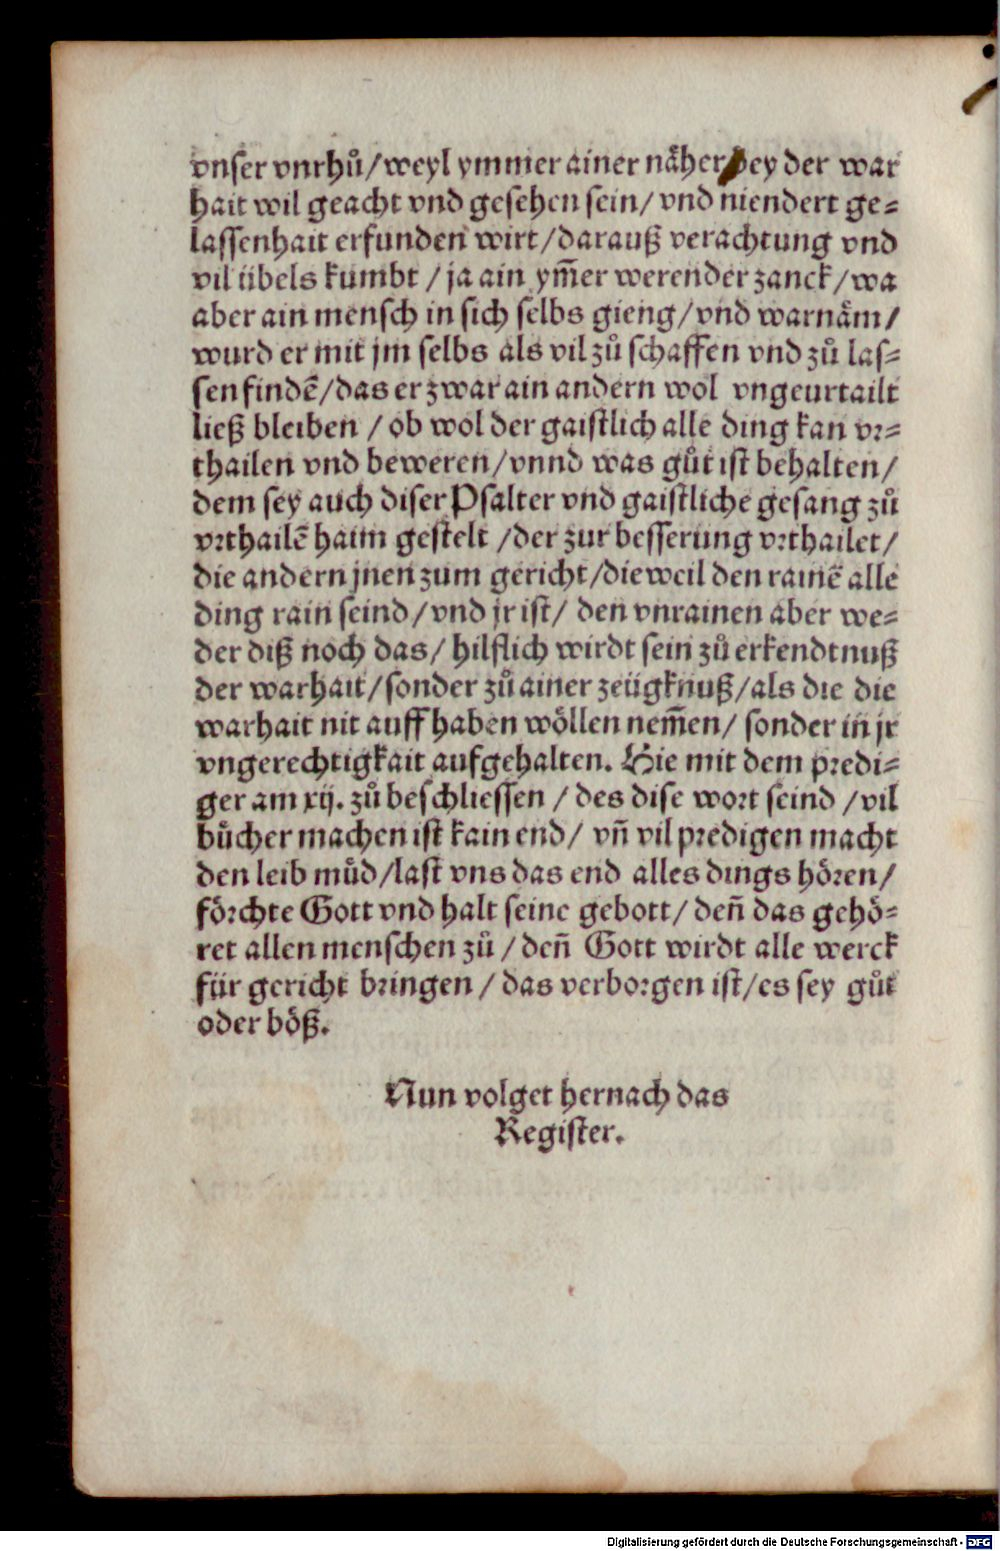 vnser vnrhů/weyl ymmer ainer näher bey der war
hait wil geacht vnd gesehen sein/ vnd niendert ge-
lassenhait erfunden wirt/darauß verachtung vnd
vil übels kumbt / ja ain ym̄er werender zanck/wa
aber ain mensch in sich selbs gieng/vnd warnäm/
wurd er mit jm selbs als vil zů schaffen vnd zů las-
sen findē/das er zwar ain andern wol vngeurtailt
ließ bleiben / ob wol der gaistlich alle ding kan vr-
thailen vnd beweren/vnnd was gůt ist behalten/
dem sey auch diser Psalter vnd gaistliche gesang zů
vrthailē haim gestelt /der zur besserung vrthailet/
die andern jnen zum gericht/dieweil den rainē alle
ding rain seind/vnd jr ist/ den vnrainen aber we-
der diß noch das/ hilflich wirdt sein zů erkendtnuß
der warhait/sonder zů ainer zeügknuß/als die die
warhait nit auff haben wöllen nem̄en/ sonder in jr
vngerechtigkait aufgehalten. Hie mit dem predi-
ger am xij. zů beschliessen / des dise wort seind /vil
bücher machen ist kain end/ vn̄ vil predigen macht
den leib müd/last vns das end alles dings hören/
förchte Gott vnd halt seine gebott/ den̄ das gehö-
ret allen menschen zů / den̄ Gott wirdt alle werck
für gericht bringen / das verborgen ist/es sey gůt
oder böß.
Nun volget hernach das
Register.
Digitalisierung gefördert durch die Deutsche Forschungsgemeinschaft - DFG